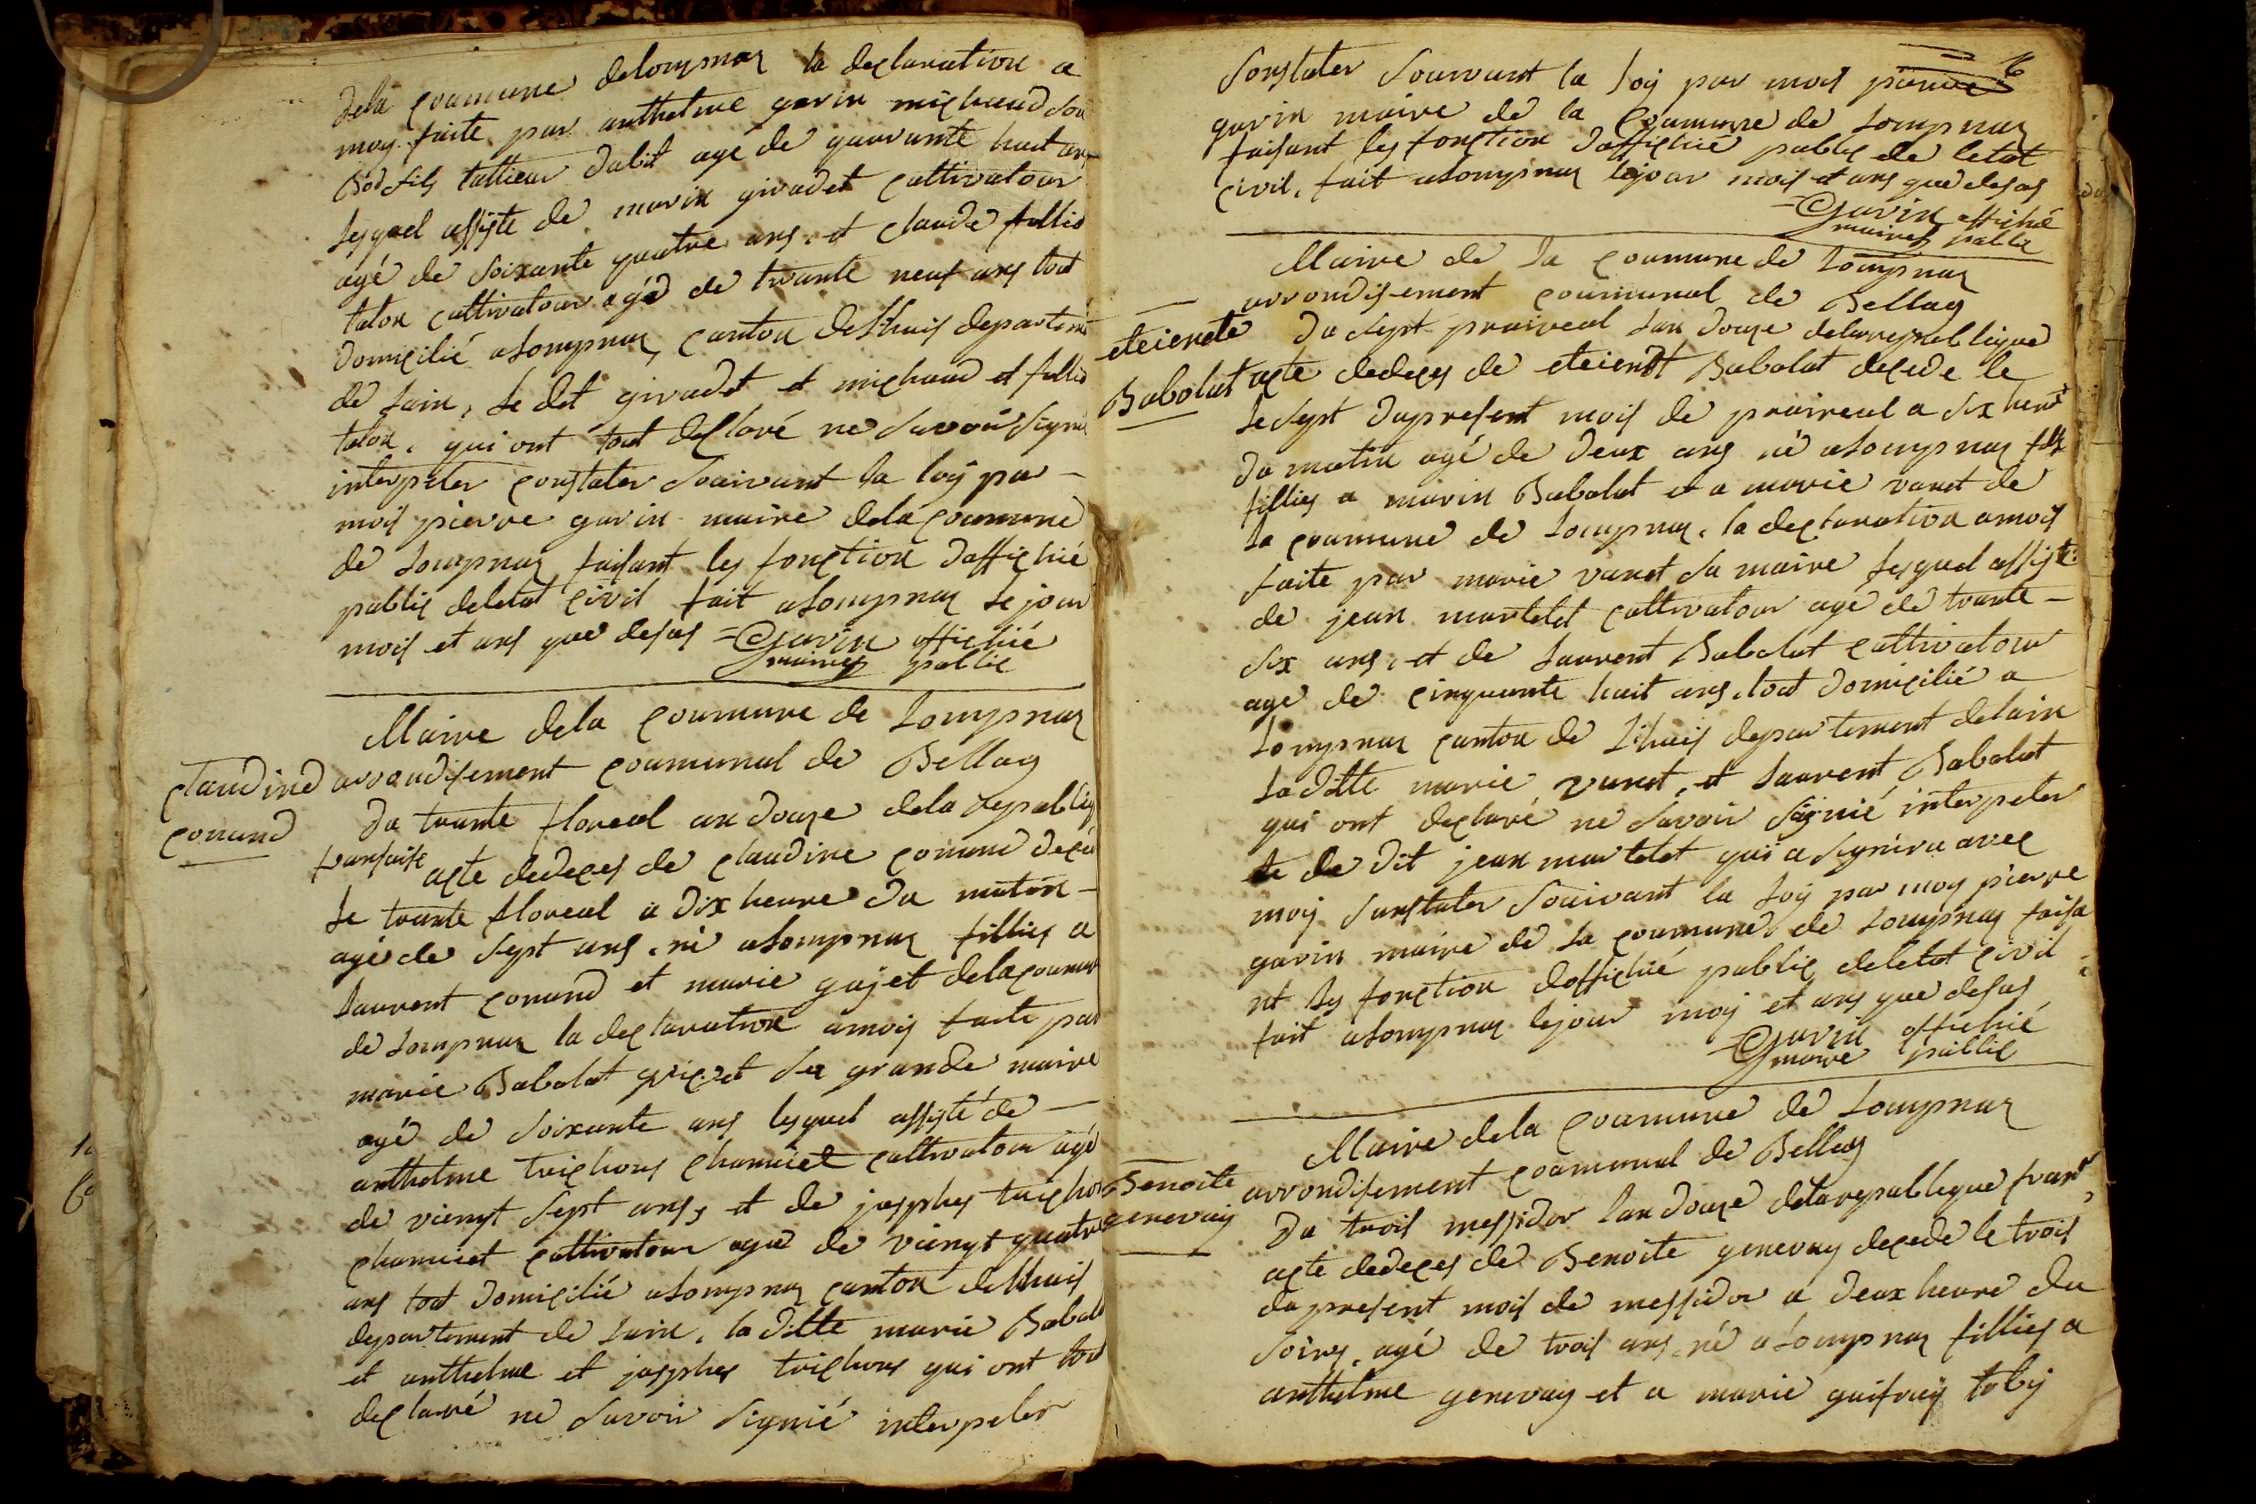 dela coumune delompnaz la declaration a
moy faite par anthelme gavin michaud son
fils tallieur dabit agé de quarante huit ans
lesquel assiste de marin giradet cultivatour
agé de soixante quatre ans et claude
talon cultivatour agéd de trante neuf ans tout
domicilié alompnaz canton delhuis departemt
de lain, le det giradet et michaud et
talon, qui ont tout declaré ne savoir signié
interpeler constater souivant la loÿ par
mois pierre gavin maire dela coumune
de lompnaz faisant les fonction daffichié
public deletat civil fait alompnaz le jour
mois et ans que desus = Gavin offichié
maire public
Maire dela coumune de lompnaz
claudine arrondisement coumunal de Bellay
conand du trante floreal an douze dela republiq
fransaise acte dedeces de claudine conand decé
le trante floreal a dix heure du matin
agé de sept ans. né alompnaz fillies a
laurent conand et marie gojet delacoumune
de lompnaz la declaration amoy faite par
marie Babolat sa grande maire
agé de soixante ans lesquel assisté de
anthelme trichons chamiet cultivatour agé
de viengt sept ans, et de josphes trichon
chamiet cultivatour agé de viengt quatre
ans tout domicilié alompnaz canton delhuis
departement de lain, la ditte marie Babolat
et anthelme et josphes trichons qui ont tout
declarré ne savoir signié interpeler
6
constater souivant la loÿ par mois pierre
gavin maire de la coumune de lompnaz
faisant les fonction daffichié public de letat
civil, fait alompnaz lejour mois et ans que desus
= Gavin offichié
maire public
Maire de la coumune de lompnaz
arrondisement coumunal de Bellay
eteienete du sept praireal lan douze delarepubligue
Babolat acte dedeces de eteienet Babolat decede le
le sept dupresent mois de praireal a six heure
du matin agé de deux ans né alompnaz
fillies a marin Babolat et a marie vanet de
la coumune de lompnaz. la declaration amois
faite par marie vanet sa maire lesquel assiste
de jean martelet cultivatour agé de trante
six ans. et de laurent Babolat cultivatour
age de cinquante huit ans. tout domicilié a
lompnaz canton de lhuis departement delain
la ditte marie vanet, et laurent Babolat
qui ont declaré ne savoir signié interpeler
le de dit jean martelet qui a signira avec
moy constater souivant la loÿ par moy pierre
gavin maire de la coumune de lompnaz faisa
nt les fonction doffichié public deletat civil
fait alompnaz lejour moy et ans que desus
= Gavin offichié
maire public
Maire dela coumune de lompnaz
Benoite arrondisement coumunal de Bellay
genevay du trois messidor lan douze delarepubligue frans
acte dedeces de Benoite genevay decede le trois
du present mois de messidor a deux heure du
soirs, agé de trois ans. né a lompnaz fillies a
anthelme genevay et a marie guifray toby